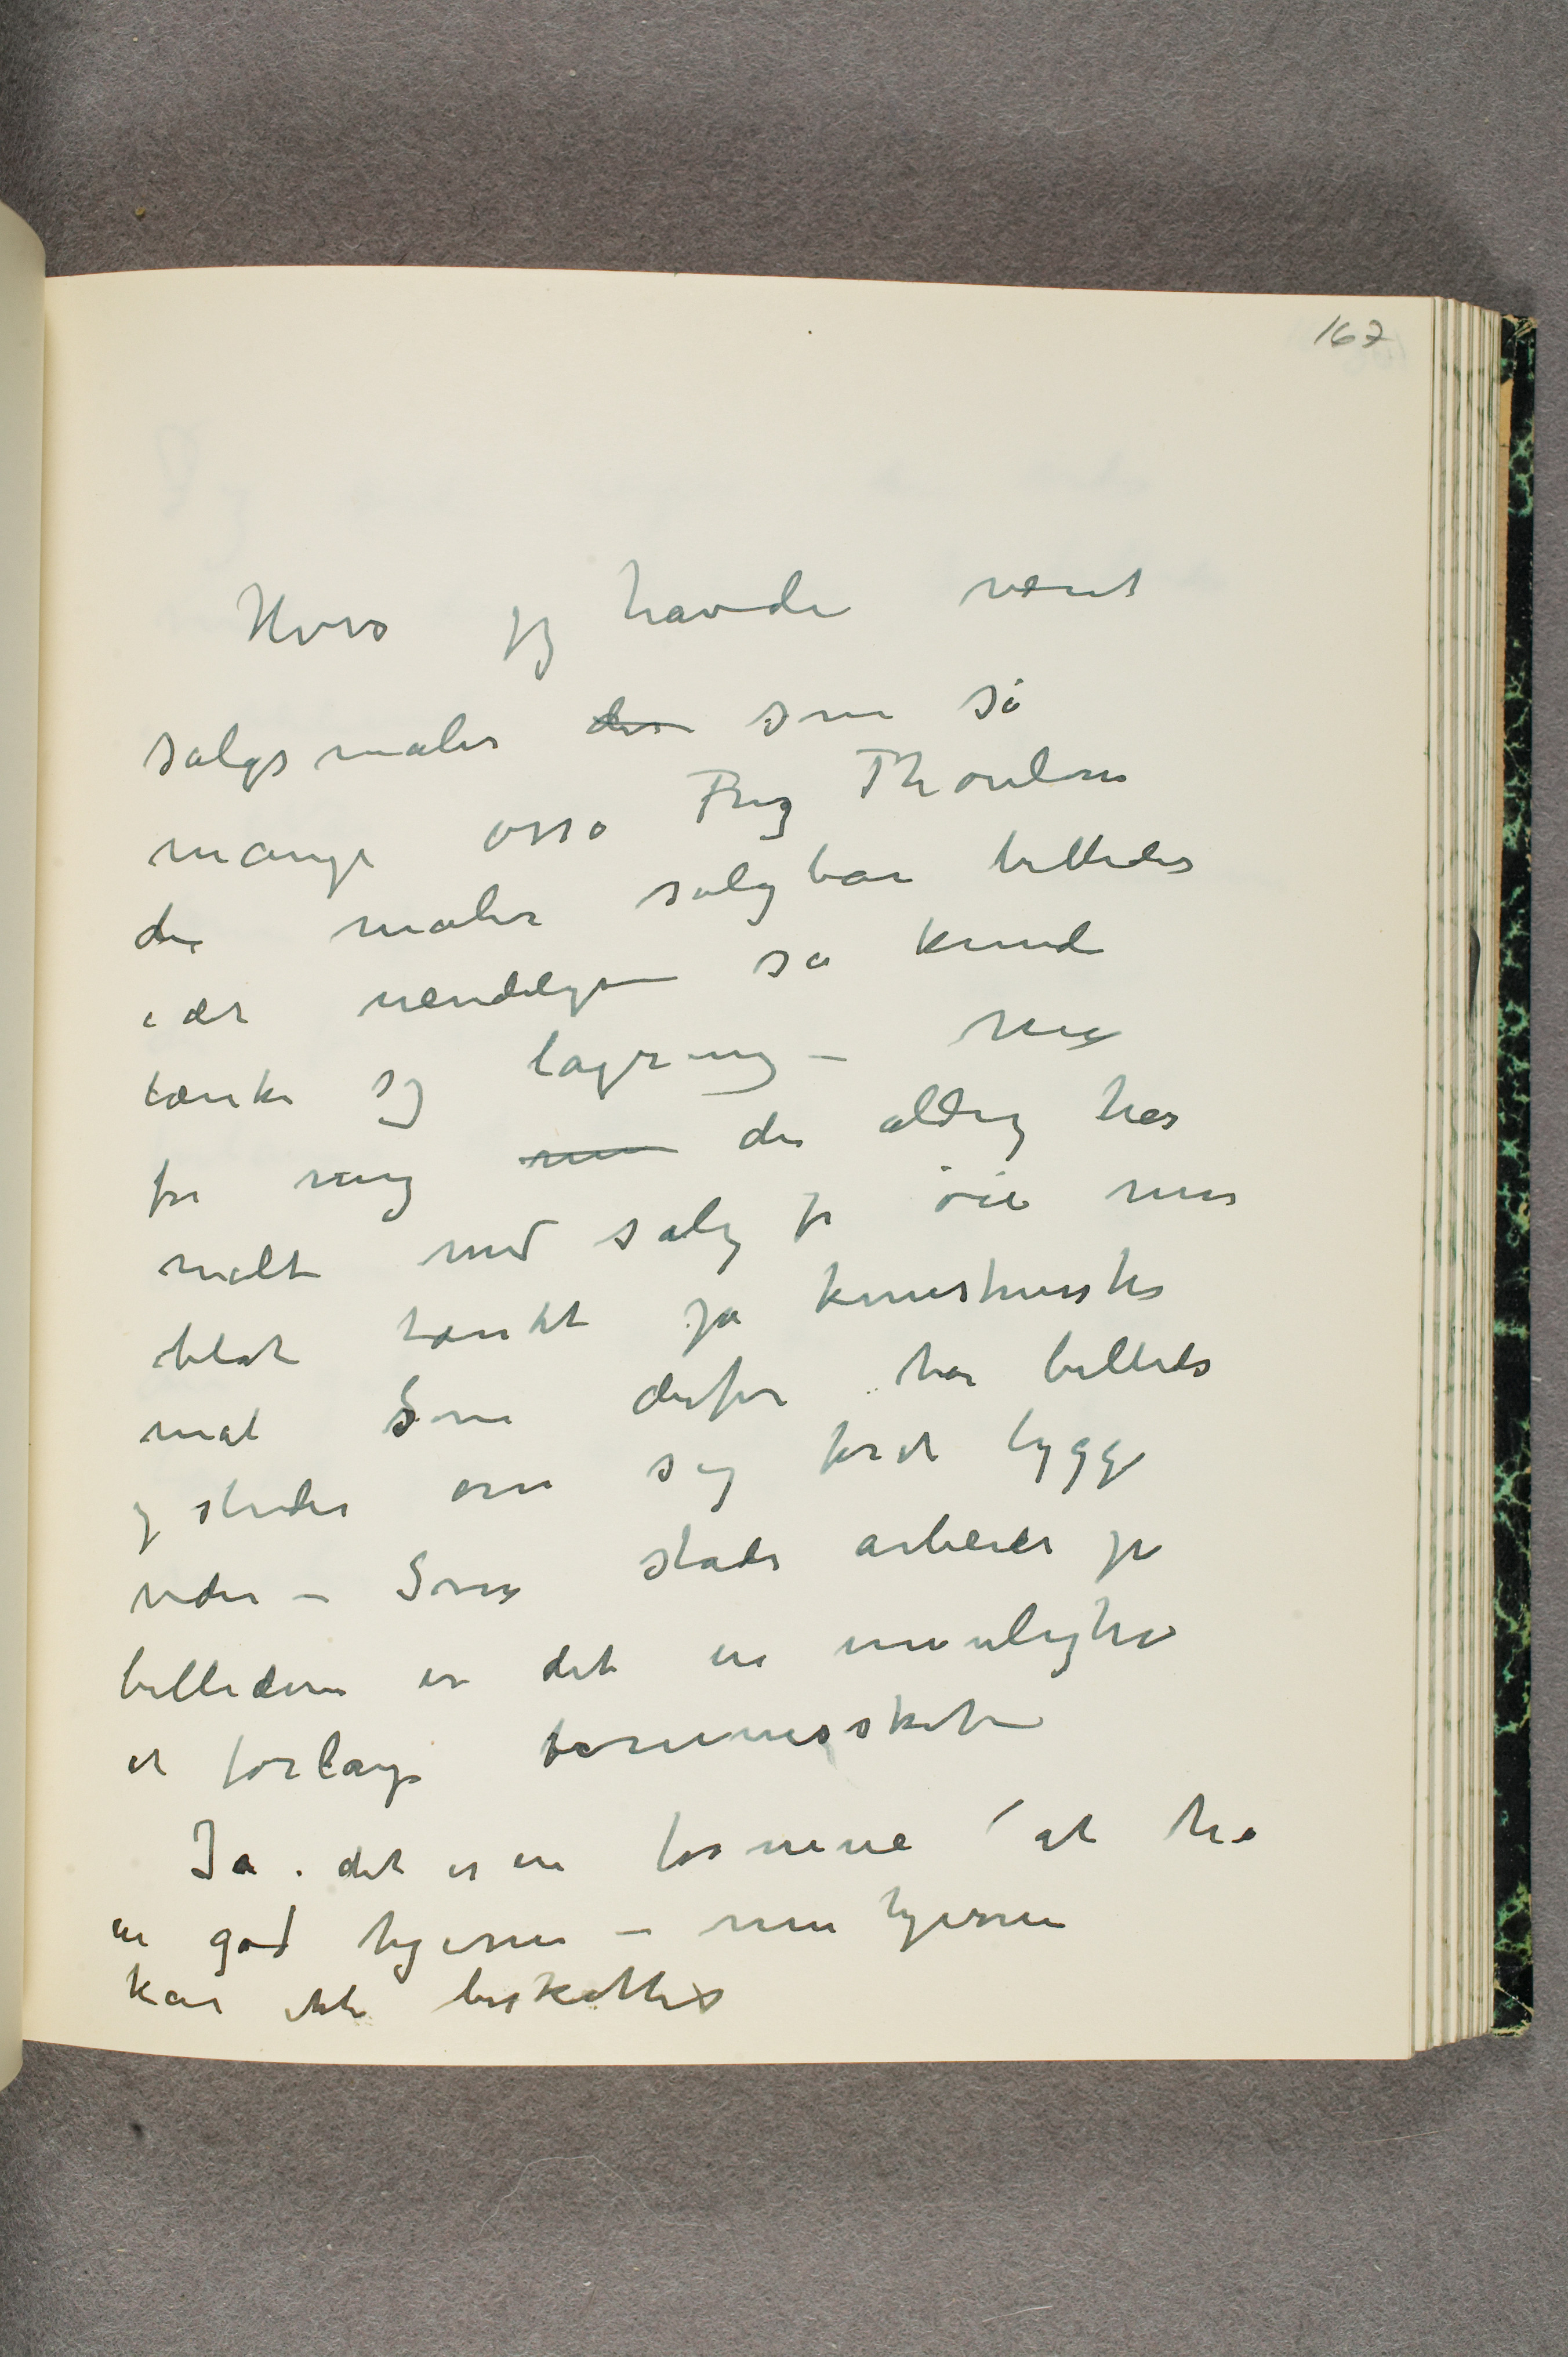 167
Hvis jeg havde været
salgsmaler der som så
mange osså Fritz Thaulow
der maler salgbare billeder
i det uendelige så kunde
tænke sig lagring – Men
for mig men der aldrig har
malt med salg for øie men
blot tænkt på kunstneriske
mål Som derfor har billeder
og studier om sig for at bygge
videre – Som stadi arbeider på
billederne er det en umulighed
at forlange formuesskat
Ja det er en formue at ha
en god hjerne – men hjernen
kan ikke beskattes